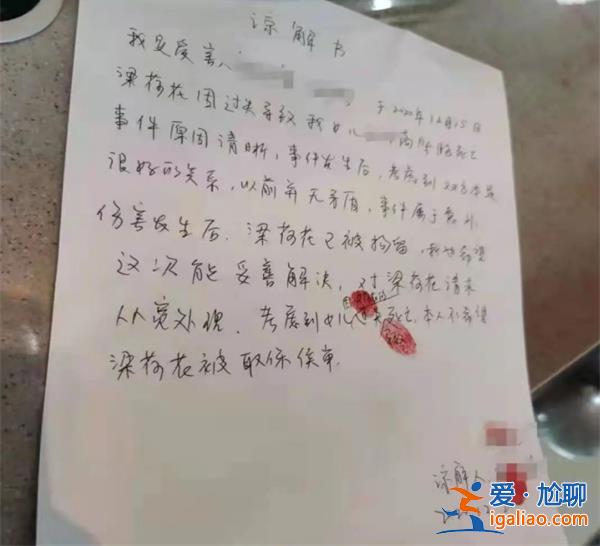 谅解书
我是受害人 于2020年12月15日
梁荷花因过失导致我女儿 高坠死亡
事件原因清晰，事件发生后，考虑到双方本是
很好的关系，以前并无矛盾，事件属于意外
伤害发生后，梁荷花已被拘留，希望
这次能妥善解决，对梁荷花请求
从宽处理。考虑到女儿 死亡，本人不希望
梁荷花被取保候审。
谅解人
爱·尬聊
igaliao.com